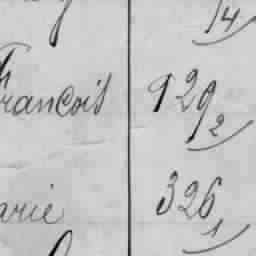 14
François 929
2
arie 326
1